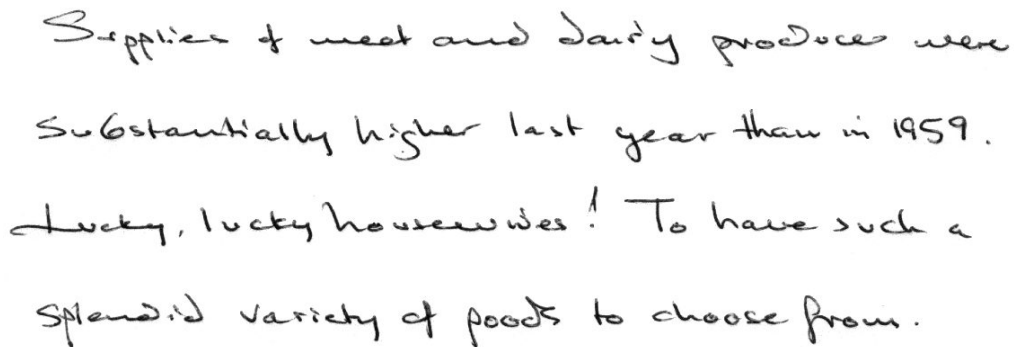 Supplies of meat and dairy produce were
substantially higher last year than in 1959.
Lucky, lucky housewives! To have such a
splendid variety of goods to choose from.